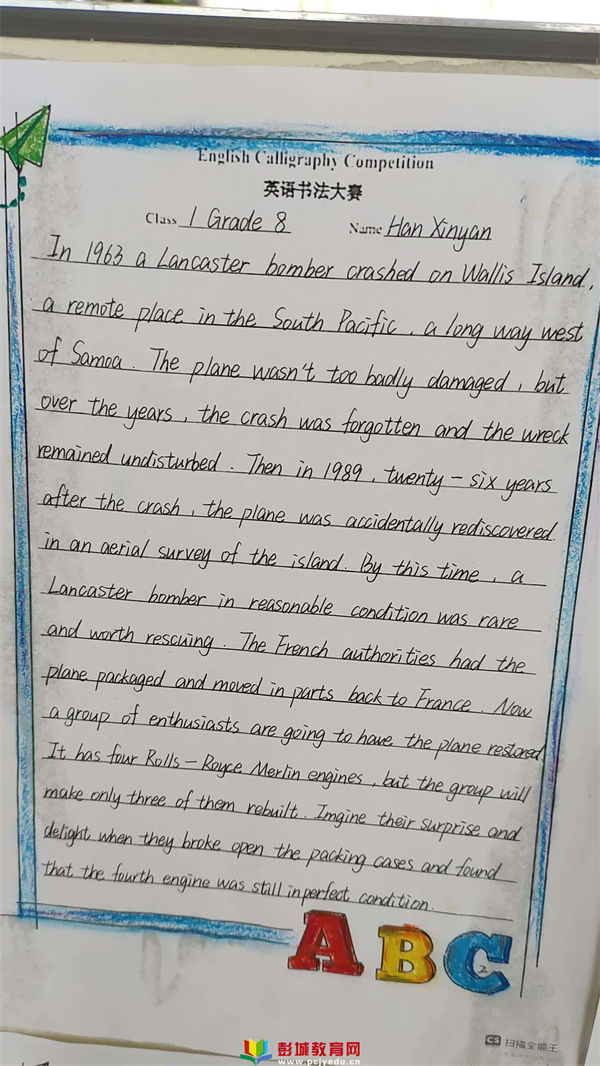 English Calligraphy Competition
英语书法大赛
Class 1 Grade 8 Name Han Xinyan
In 1963 a Lancaster bomber crashed on Wallis Island,
a remote place in the South Pacific, a long way west
of Samoa. The plane wasn't too badly damaged, but
over the years, the crash was forgotten and the wreck
remained undisturbed. Then in 1989, twenty-six years
after the crash, the plane was accidentally rediscovered.
in an aerial survey of the island. By this time, a
Lancaster bomber in reasonable condition was rare
and worth rescuing. The French authorities had the
plane packaged and moved in parts back to France. Now
a group of enthusiasts are going to have the plane restored.
It has four Rolls-Royce Merlin engines, but the group will
make only three of them rebuilt. Imgine their surprise and
delight when they broke open the packing cases and found
that the fourth engine was still in perfect condition.
ABC
2
CS 扫描全能王
彭城教育网
www.pcjyedu.cn